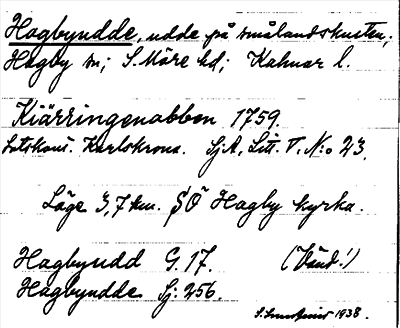 Hagbyudde, udde på smålandskusten,
Hagby sn; S. Möre hd; Kalmar l.
Kiärringenabben 1759.
Lotskont. Karlskrona. Sj.A. Litt. T. N:o 23.
Läge 3,7 km. SÖ Hagby kyrka.
Hagbyudd G. 17. (Vänd!)
Hagbyudde Sj. 256.
1938.